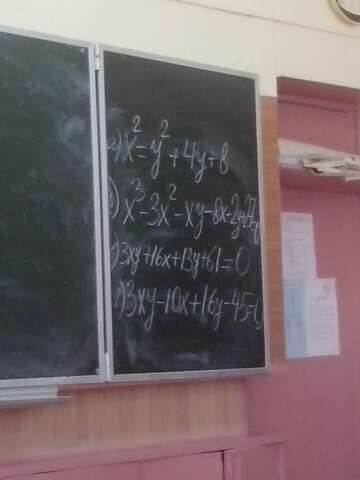 а) x² = y² + 4y + 8
б) x³ - 3x² - xy - 8x - 2y + 27 = 0
в) 3xy + 16x + 13y + 61 = 0
г) 3xy - 10x + 16y - 45 = 0